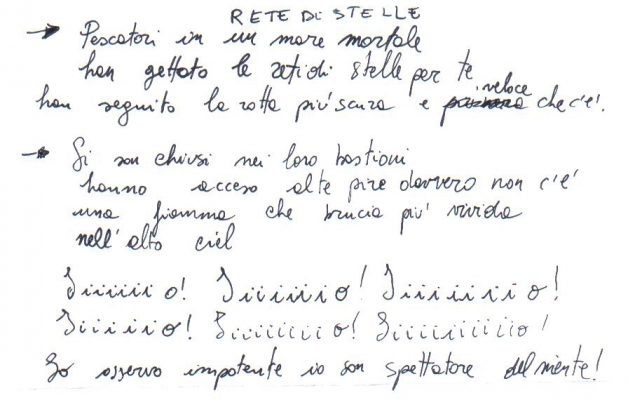 RETE DI STELLE
→ Pescatori in un mare mortale
han gettato le reti di stelle per te
veloce
han seguito la rotta più scura e che c'è!
→ Si son chiusi nei loro bastioni
hanno acceso alte pire davvero non c'è
una fiamma che brucia più vivida
nell'alto ciel
Iiiiiiio! Iiiiiiio! Iiiiiiiio!
Iiiiiio! Iiiiiiiio! Iiiiiiiiiio!
Io osservo impotente io son spettatore del niente!